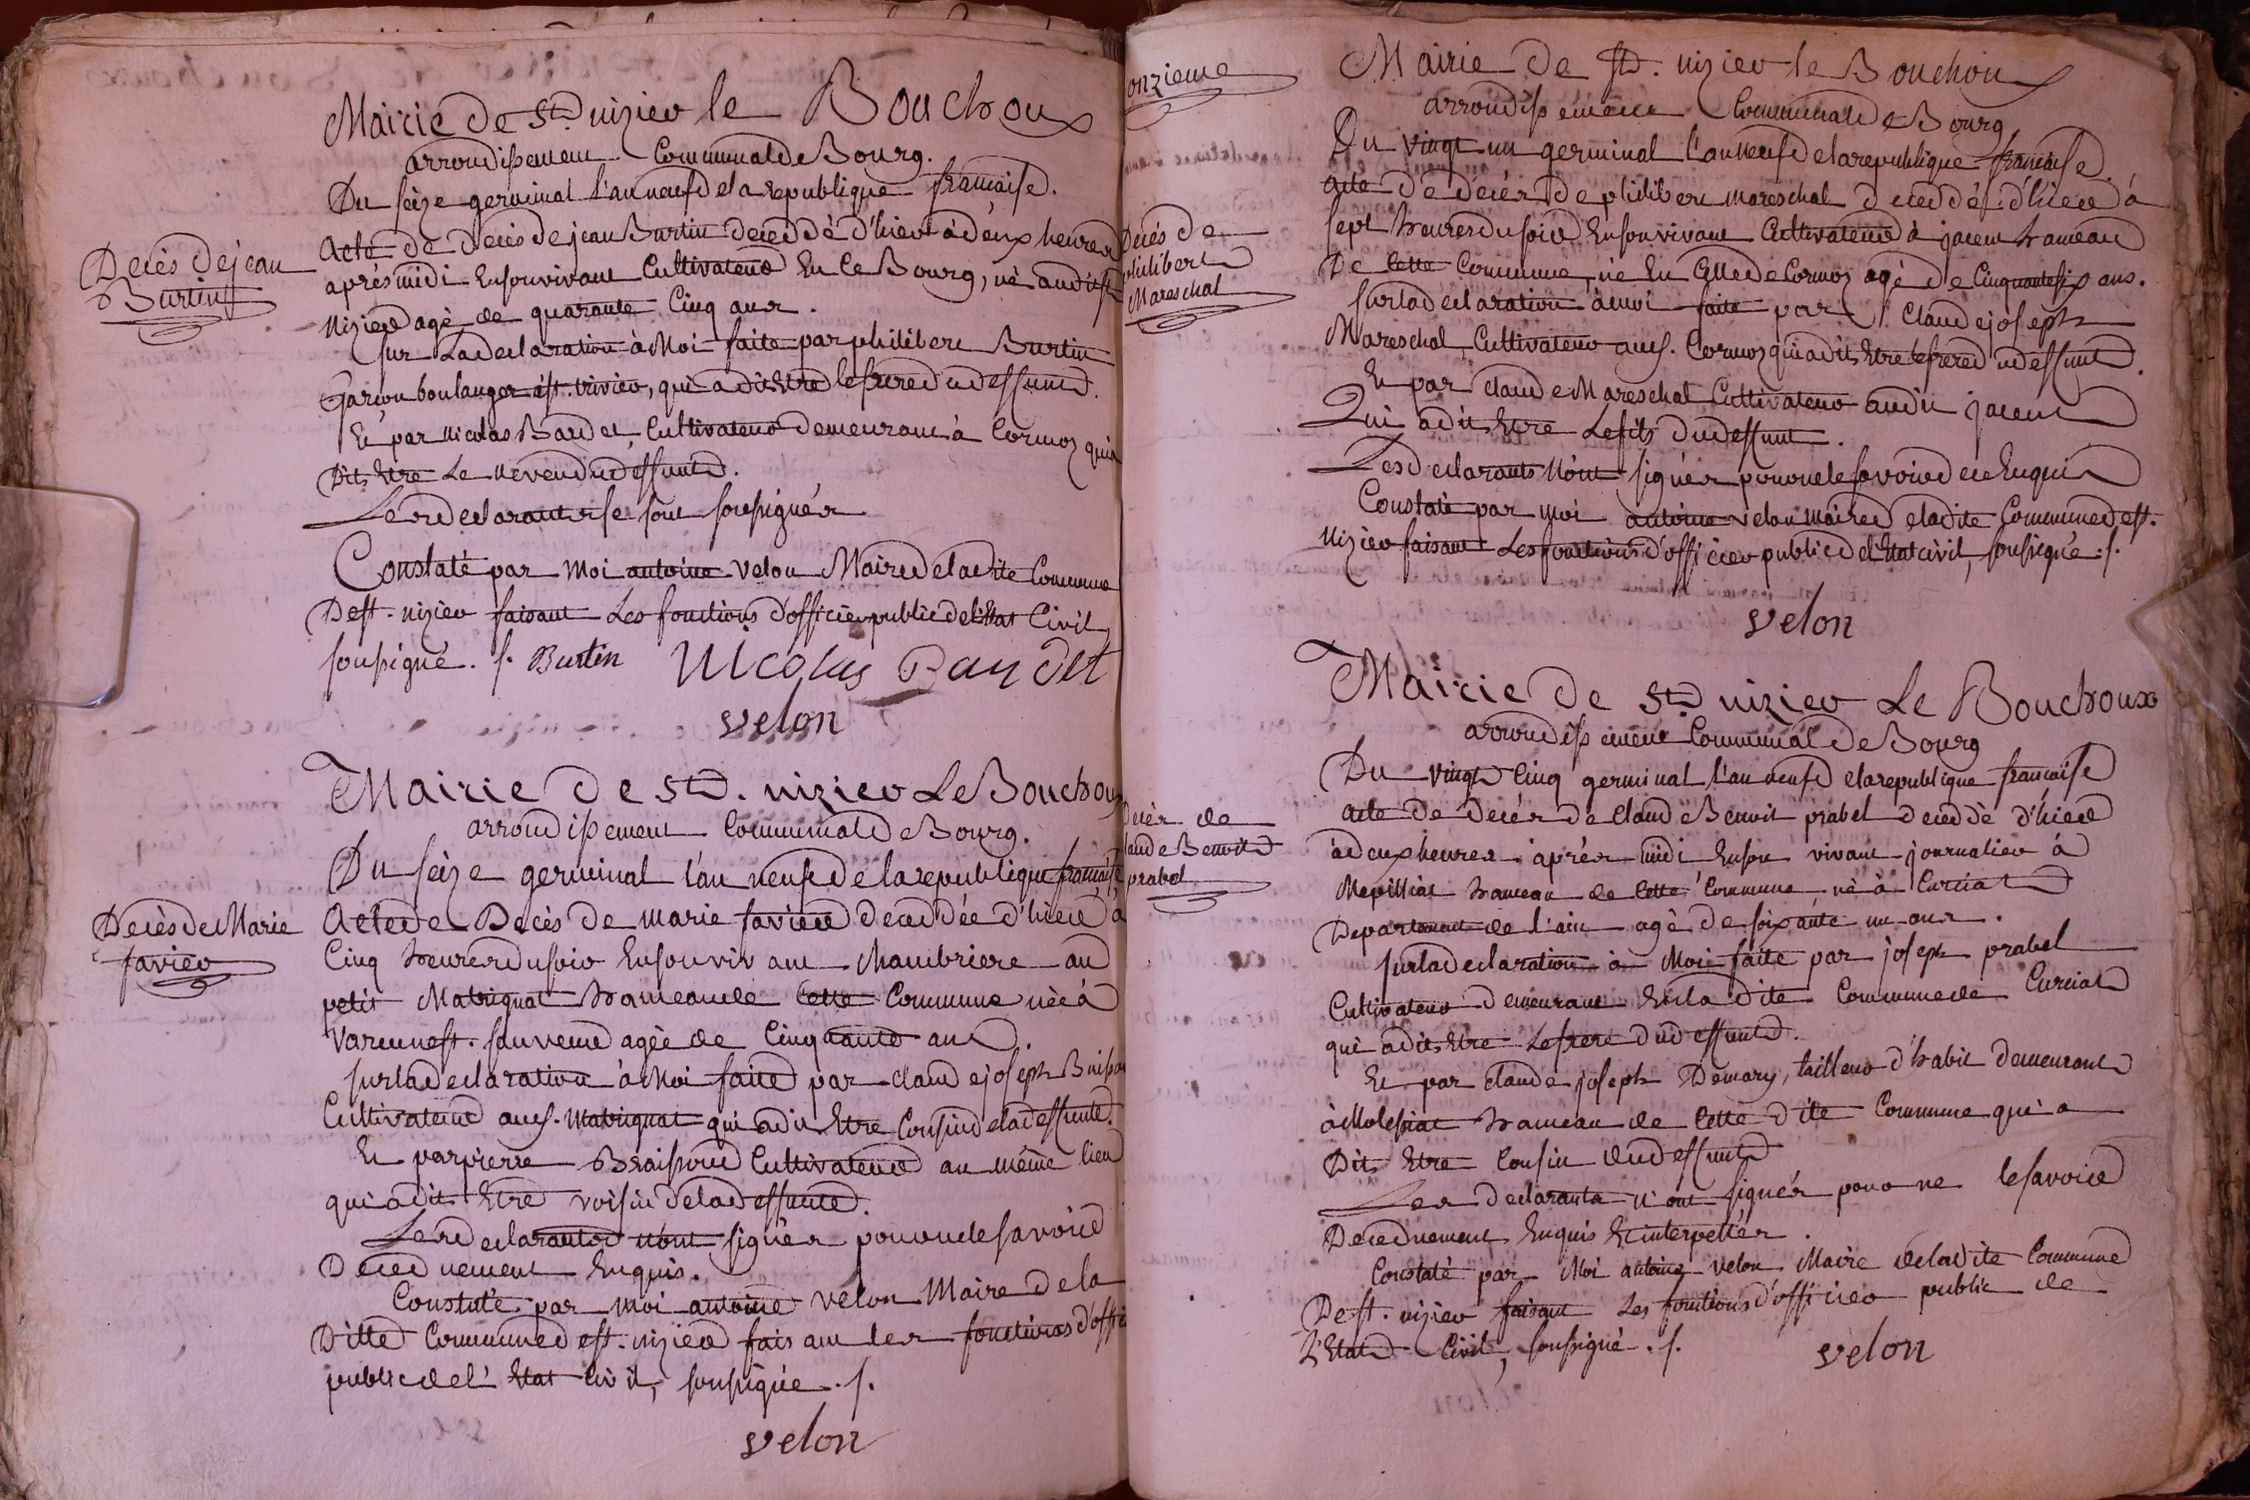 Mairie de St. nizier le Bouchoux
arrondissement Communal de Bourg.
Du seize germinal l'an neuf de la republique francaise.
Decès de jean
Burtin
Acte de Decès de jean Burtin decedé d'hier à deux heures
après midi En son vivant Cultivateur En ce Bourg, né audit st
Nizier agé de quarante Cinq ans.
Sur La declaration à Moi faite par philibert Burtin
Garçon boulanger à st. trivier, qui a dit Etre le frere du deffunt.
Et par nicolas Baudet, Cultivateur demeurant à Cormoz qui a
Dit Etre Le neveu du deffunt.
Les declarants se sont soussignés
Constaté par moi antoine velon Maire de la dite Commune
De st. nizier faisant Les fonctions d'officier public de l'Etat Civil
soussigné. /. Burtin Nicolas Baudet
velon
Mairie de St. nizier Le Bouchoux
arrondissement Communal de Bourg.
Du seize germinal l'an neuf de la republique francaise
Decès de Marie
favier
Acte de Decès de marie favier decedée d'hier à
Cinq heures du soir En son vivant Chambriere au
petit Matrignat hameau de Cette Commune née à
Varenne st. sauveur agée de Cinquante ans.
sur la declaration à Moi faite par claude joseph
Cultivateur aud. Matrignat qui a dit Etre Cousin de la deffunte.
Et par pierre Braissoud Cultivateur au même lieu
qui a dit Etre voisin de la deffunte.
Les declarants n'ont signés pour ne le savoir
De ce duement Enquis.
Constaté par moi antoine velon Maire de la
Ditte Commune de st. nizier faisant les fonctions d'offi
public de l'Etat Civil, soussigné ./.
velon
onzieme
Mairie de St. nizier le Bouchoux
arrondissement Communal de Bourg
Du vingt un germinal l'an neuf de la republique francaise
Decés de
philibert
Mareschal
Acte de decés de philibert mareschal decedé d'hier à
sept heures du soir En son vivant Cultivateur à jacent hameau
De Cette Commune, né En Celle de Cormoz agé de Cinquante six ans.
sur la declaration à moi faite par Claude joseph
Mareschal Cultivateur aud. Cormoz qui a dit Etre le frere du deffunt.
Et par claude Mareschal Cultivateur audit jacent
Qui a dit Etre Le fils du deffunt.
Les declarants N'ont signés pour ne le savoir de ce Enquis
Constaté par moi antoine velon maire de la dite Commune de st.
Nizier faisant Les fonctions d'officier public de l'Etat civil, soussigné ./.
velon
Mairie De St. nizier Le Bouchoux
arrondissement Communal de Bourg
Du vingt Cinq germinal l'an neuf de la republique francaise
Decès de
laude Benoit
prabel
Acte de decés de claude Benoit prabel decedé d'hier
à deux heures aprés midi En son vivant journalier à
Mepilliat hameau de Cette Commune né à Curciat
Departement de l'ain agé de soixante un ans.
sur la declaration à Moi faite par joseph prabel
Cultivateur demeurant En la dite Commune de Curciat
qui a dit Etre Le frere du deffunt.
Et par claude joseph Demary, tailleur d'habit demeurant
à Molessiat hameau de Cette dite Commune qui a
Dit Etre Cousin du deffunt
Les declarants n'ont signés pour ne le savoir
De ce duement Enquis Et interpellés.
Constaté par Moi antoine velon Maire de la dite Commune
De st. nizier faisant Les fonctions d'officier public de
L'Etat Civil, soussigné ./.
velon